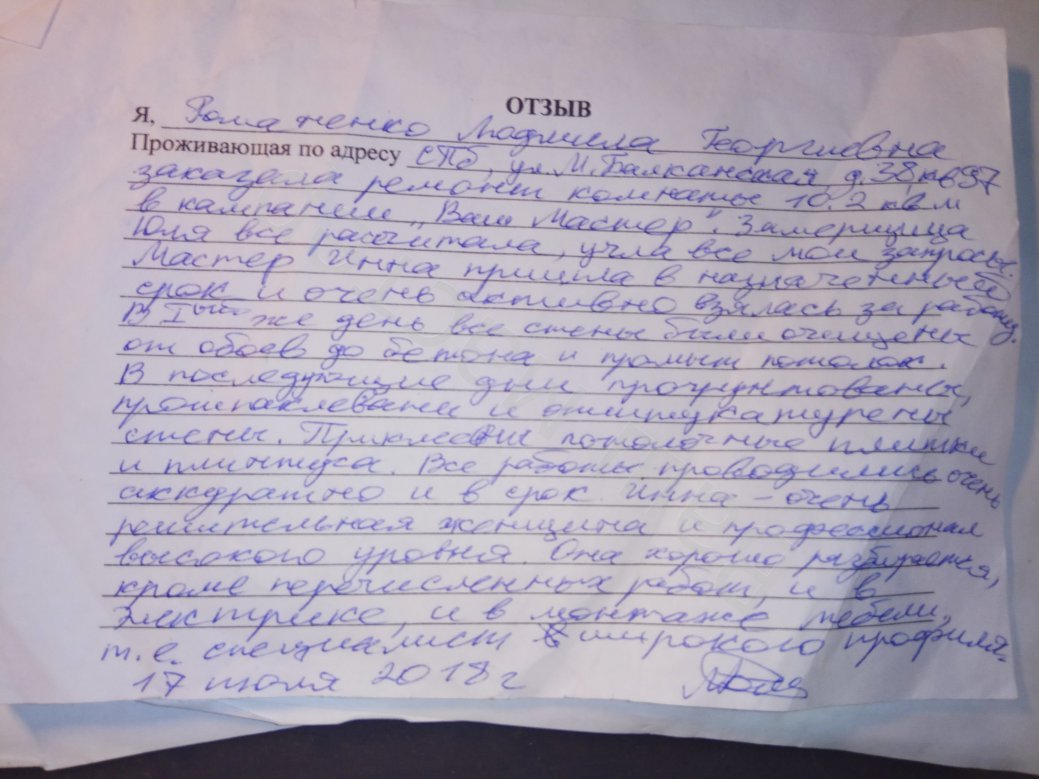 ОТЗЫВ
Я, Романенко Людмила Георгиевна
Проживающая по адресу СПб, ул. М. Балканская д. 38, кв 97
заказала ремонт комнаты 10.2 кв м
в кампании "Ваш Мастер". Замерщица
Юля все расчитала, учла все мои запросы.
Мастер Инна пришла в назначенный
срок и очень активно взялась за работу.
В Iый же день все стены были очищены
от обоев до бетона и промыт потолок.
В последующие дни прогрунтованы,
прошпаклеваны и отштукатурены
стены. Приклеены потолочные плитки
и плинтуса. Все работы проводились очень
аккуратно и в срок Инна - очень
решительная женщина и профессионал
высокого уровня. Она хорошо разбирается,
кроме перечисленных работ, и в
электрике, и в монтаже мебели,
т.е. специалист широкого профиля.
17 июля 2018 г